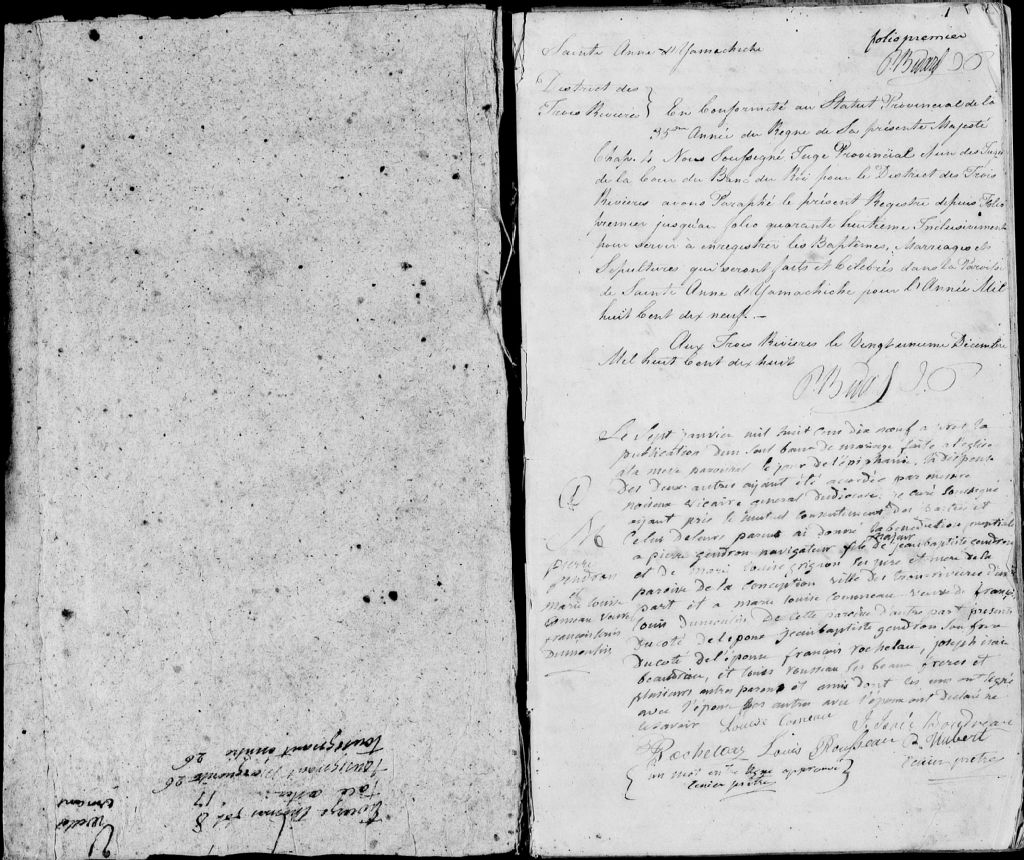 1
folio premier
P. Bedard
Sainte Anne d'Yamachiche
District des
Trois Rivieres } En Conformité au Statut Provincial de la
35me Année du Regne de Sa présente Majesté
Chap. 4 Nous Soussigné, Juge Provincial et un des Juges
de la Cour du Banc du Roi pour le District des Trois
Rivieres avons Paraphé le present Registre depuis Folio
premier jusqu'au folio quarante huitieme Inclusivement
pour servir à enregistrer les Baptêmes, Marriages et
Sepultures qui seront faits et Célébrés dans la Paroisse
de Sainte Anne d'Yamachiche pour l'Année Mil
huit Cent dix neuf. —
Aux Trois Rivieres le Vingt unieme Décembre
Mil huit Cent dix huit
P. Bedard
Le Sept janvier mil huit cen dix noeuf apres la
publication d'un seul banc de mariage faite a l'eglise
a la messe paroissial le jour de l'epiphanie, la dispense
des deux autres ayant été acordée par messire
noiseux vicaire general du diocese, je curé soussigné
ayant pris le mutuel consentement des parties et
celui de leurs parens ai donné la benediction nuptiale
a pierre gendron navigateur fils majeur de jean baptiste gendron
et de marie louise grignon ses pere et mere de la
paroisse de la conception ville des trois rivieres d'une
part et a marie louise comneau veuve de françois
louis dumoulin de cette paroisse d'autre part presents
du coté de l'epoux jean baptiste gendron son frere
du coté de l'epouse françois rochelau, joseph
beaudrau, et louis rousseau ses beaux freres et
plusieurs autres parens et amis dont les uns ont signé
avec l'epouse les autres avec l'epoux ont declaré ne
le savoir Louise Comeau
M
pierre
gendron
et
marie louise
comneau veuve
françois louis
Dumoulin
Rocheleau Louis Rousseau Hubert
un mot entre ligne approuvé
Ecuier prêtre
Ecuier prêtre
George Thomas fol 8
17
26
Toussignant
26